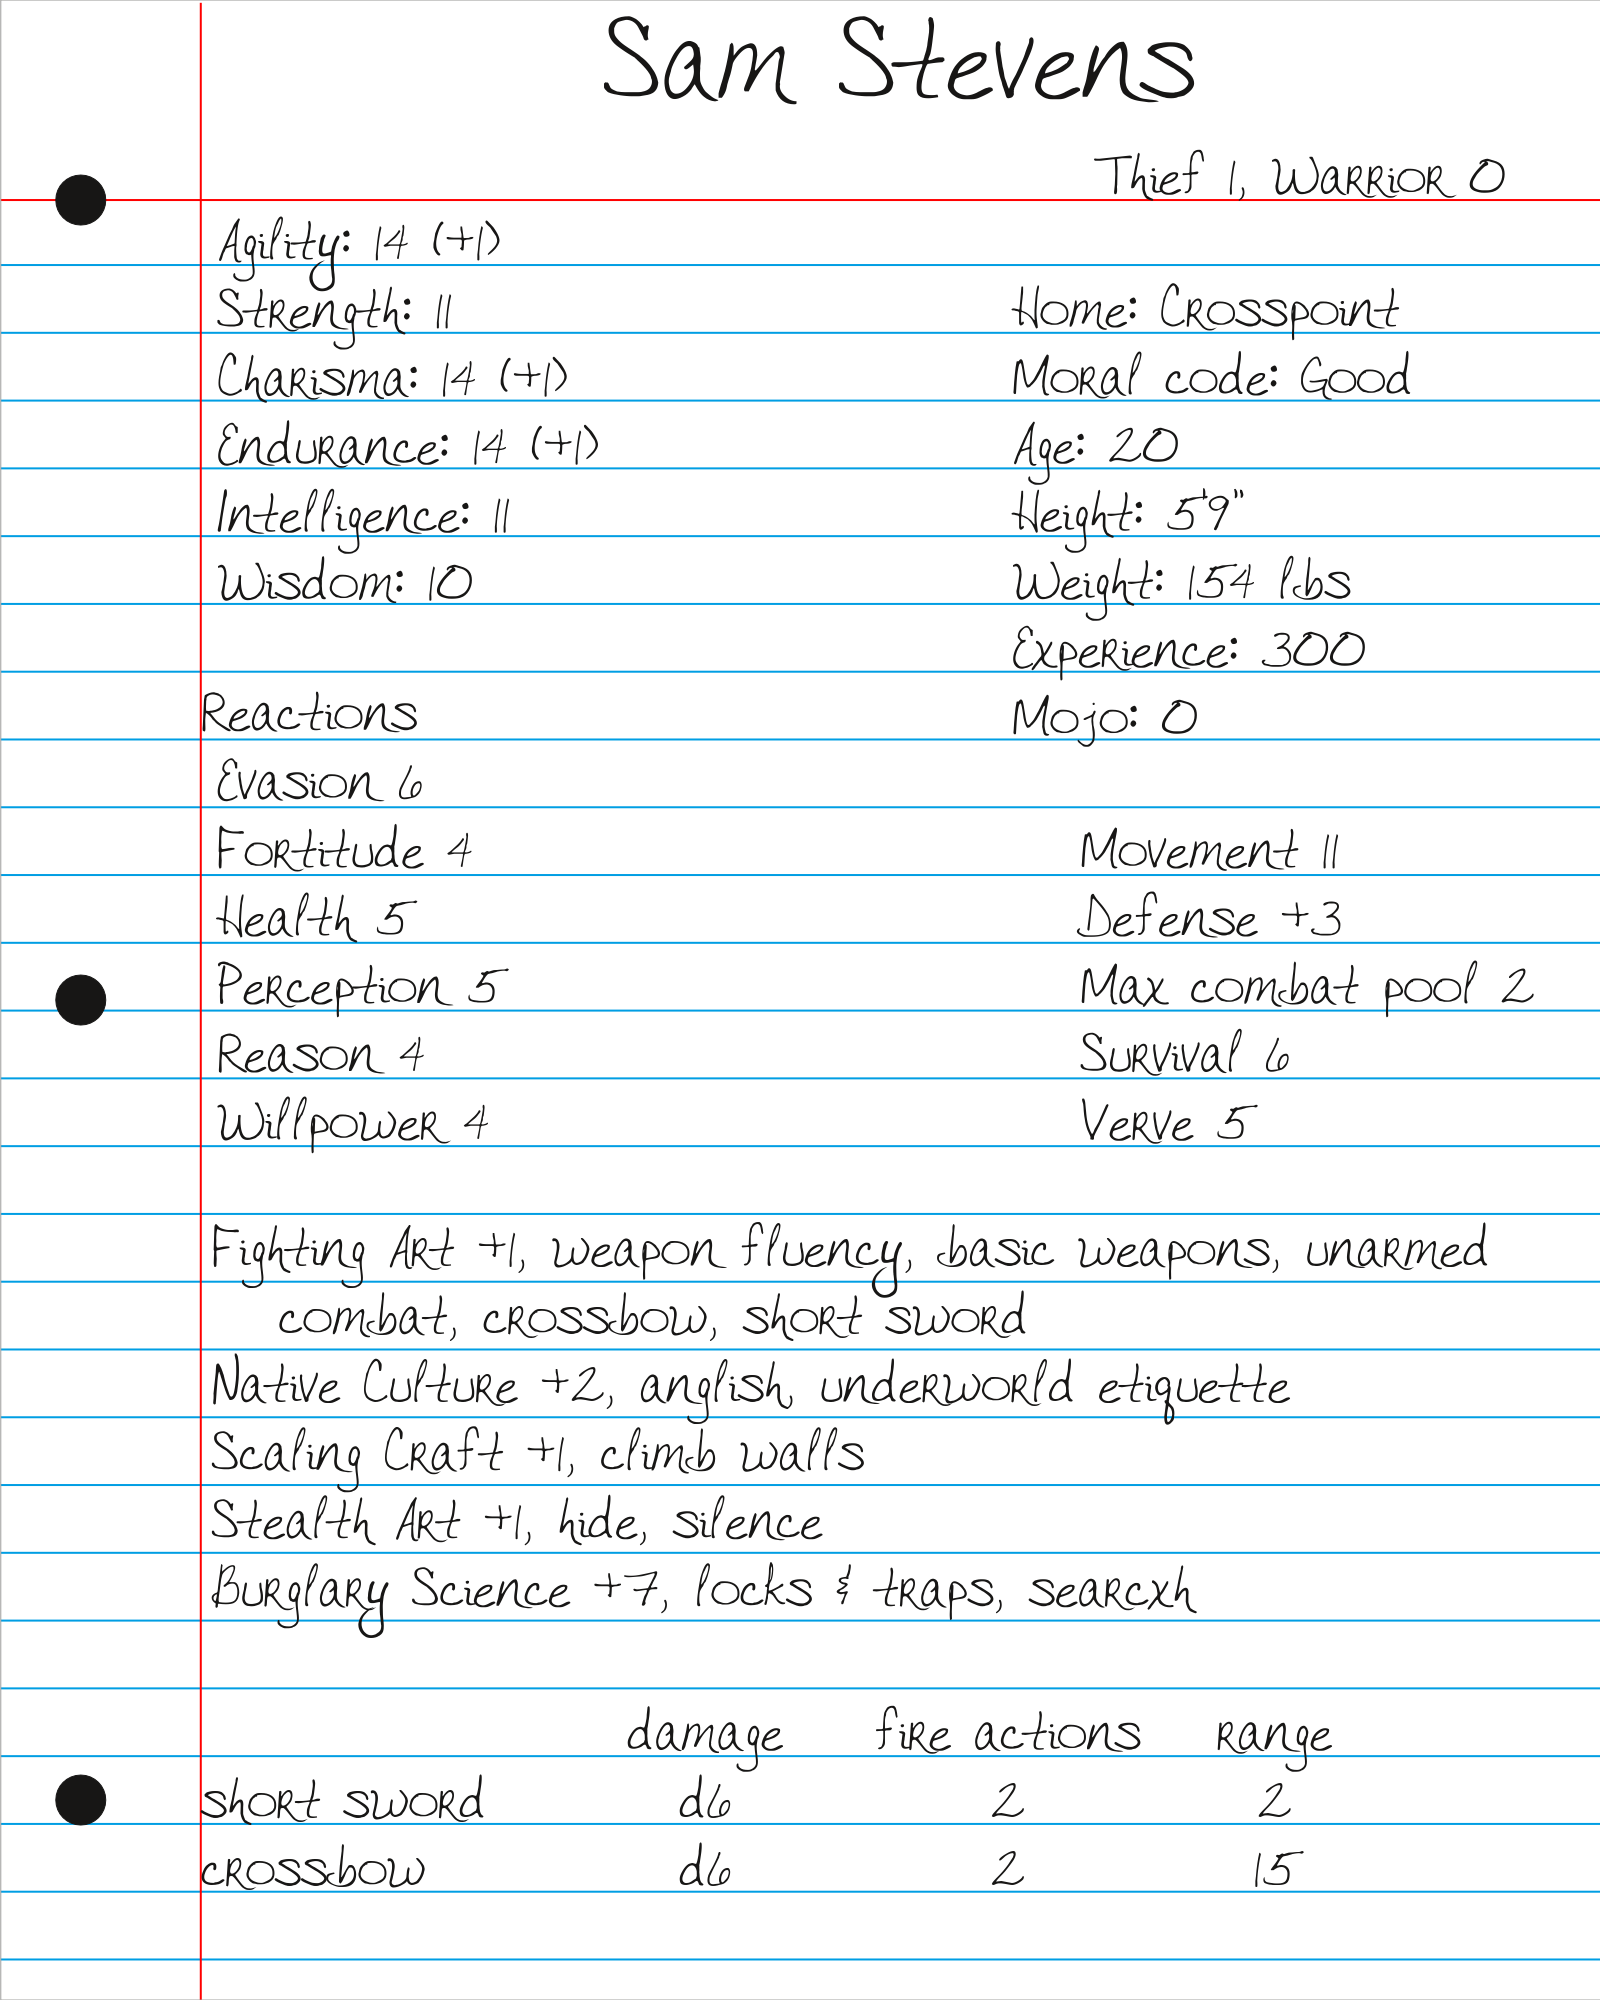 Sam Stevens
Thief 1, Warrior 0
Agility: 14 (+1)
Strength: 11
Charisma: 14 (+1)
Endurance: 14 (+1)
Intelligence: 11
Wisdom: 10
Home: Crosspoint
Moral code: Good
Age: 20
Height: 5'9"
Weight: 154 lbs
Experience: 300
Mojo: 0
Reactions
Evasion 6
Fortitude 4
Health 5
Perception 5
Reason 4
Willpower 4
Movement 11
Defense +3
Max combat pool 2
Survival 6
Verve 5
Fighting Art +1, weapon fluency, basic weapons, unarmed
combat, crossbow, short sword
Native Culture +2, anglish, underworld etiquette
Scaling Craft +1, climb walls
Stealth Art +1, hide, silence
Burglary Science +7, locks & traps, searcxh
damage fire actions range
short sword d6 2 2
crossbow d6 2 15